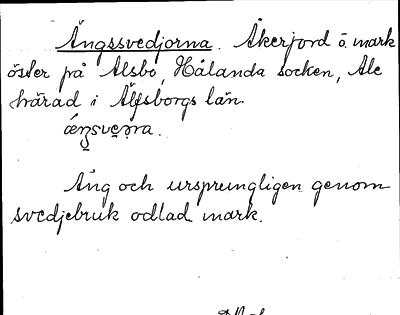 Ängssvedjorna. Åkerjord o. mark
öster på Alsbo, Hålanda socken, Ale
härad i Älfsborgs län.
Äng och ursprungligen genom
svedjebruk odlad mark.